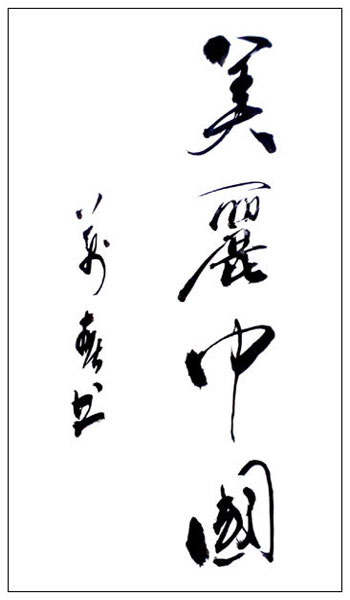 美麗中國